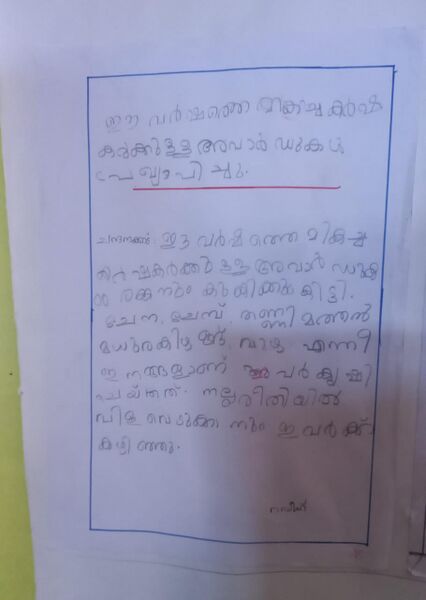 ഈ വർഷത്തെ മികച്ച കർഷ
കർക്കുള്ള അവാർഡുകൾ
പ്രഖ്യാപിച്ചു.
ഈ വർഷത്തെ മികച്ച
കർഷകർക്കുള്ള അവാർഡുക
ൾ രക്കനും കുക്കിക്കും കിട്ടി.
ചേന, ചേമ്പ്, തണ്ണിമത്തൻ
മധുരകിഴങ്ങ്, വാഴ എന്നീ
ഇനങ്ങളാണ് അവർ കൃഷി
ചെയ്തത്. നല്ലരീതിയിൽ
വിളവെടുക്കാനും ഇവർക്ക്
കഴിഞ്ഞു.